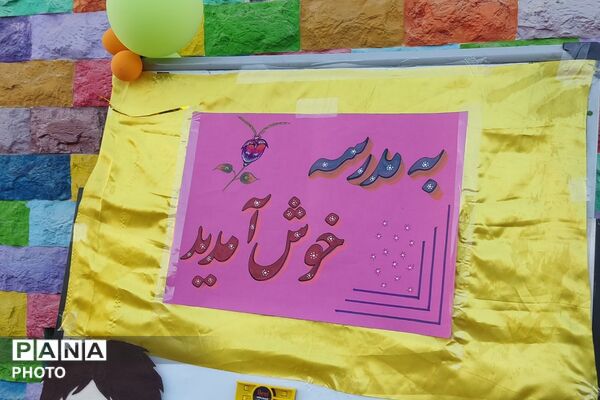 به مدرسه
خوش آمدید
PANA
PHOTO